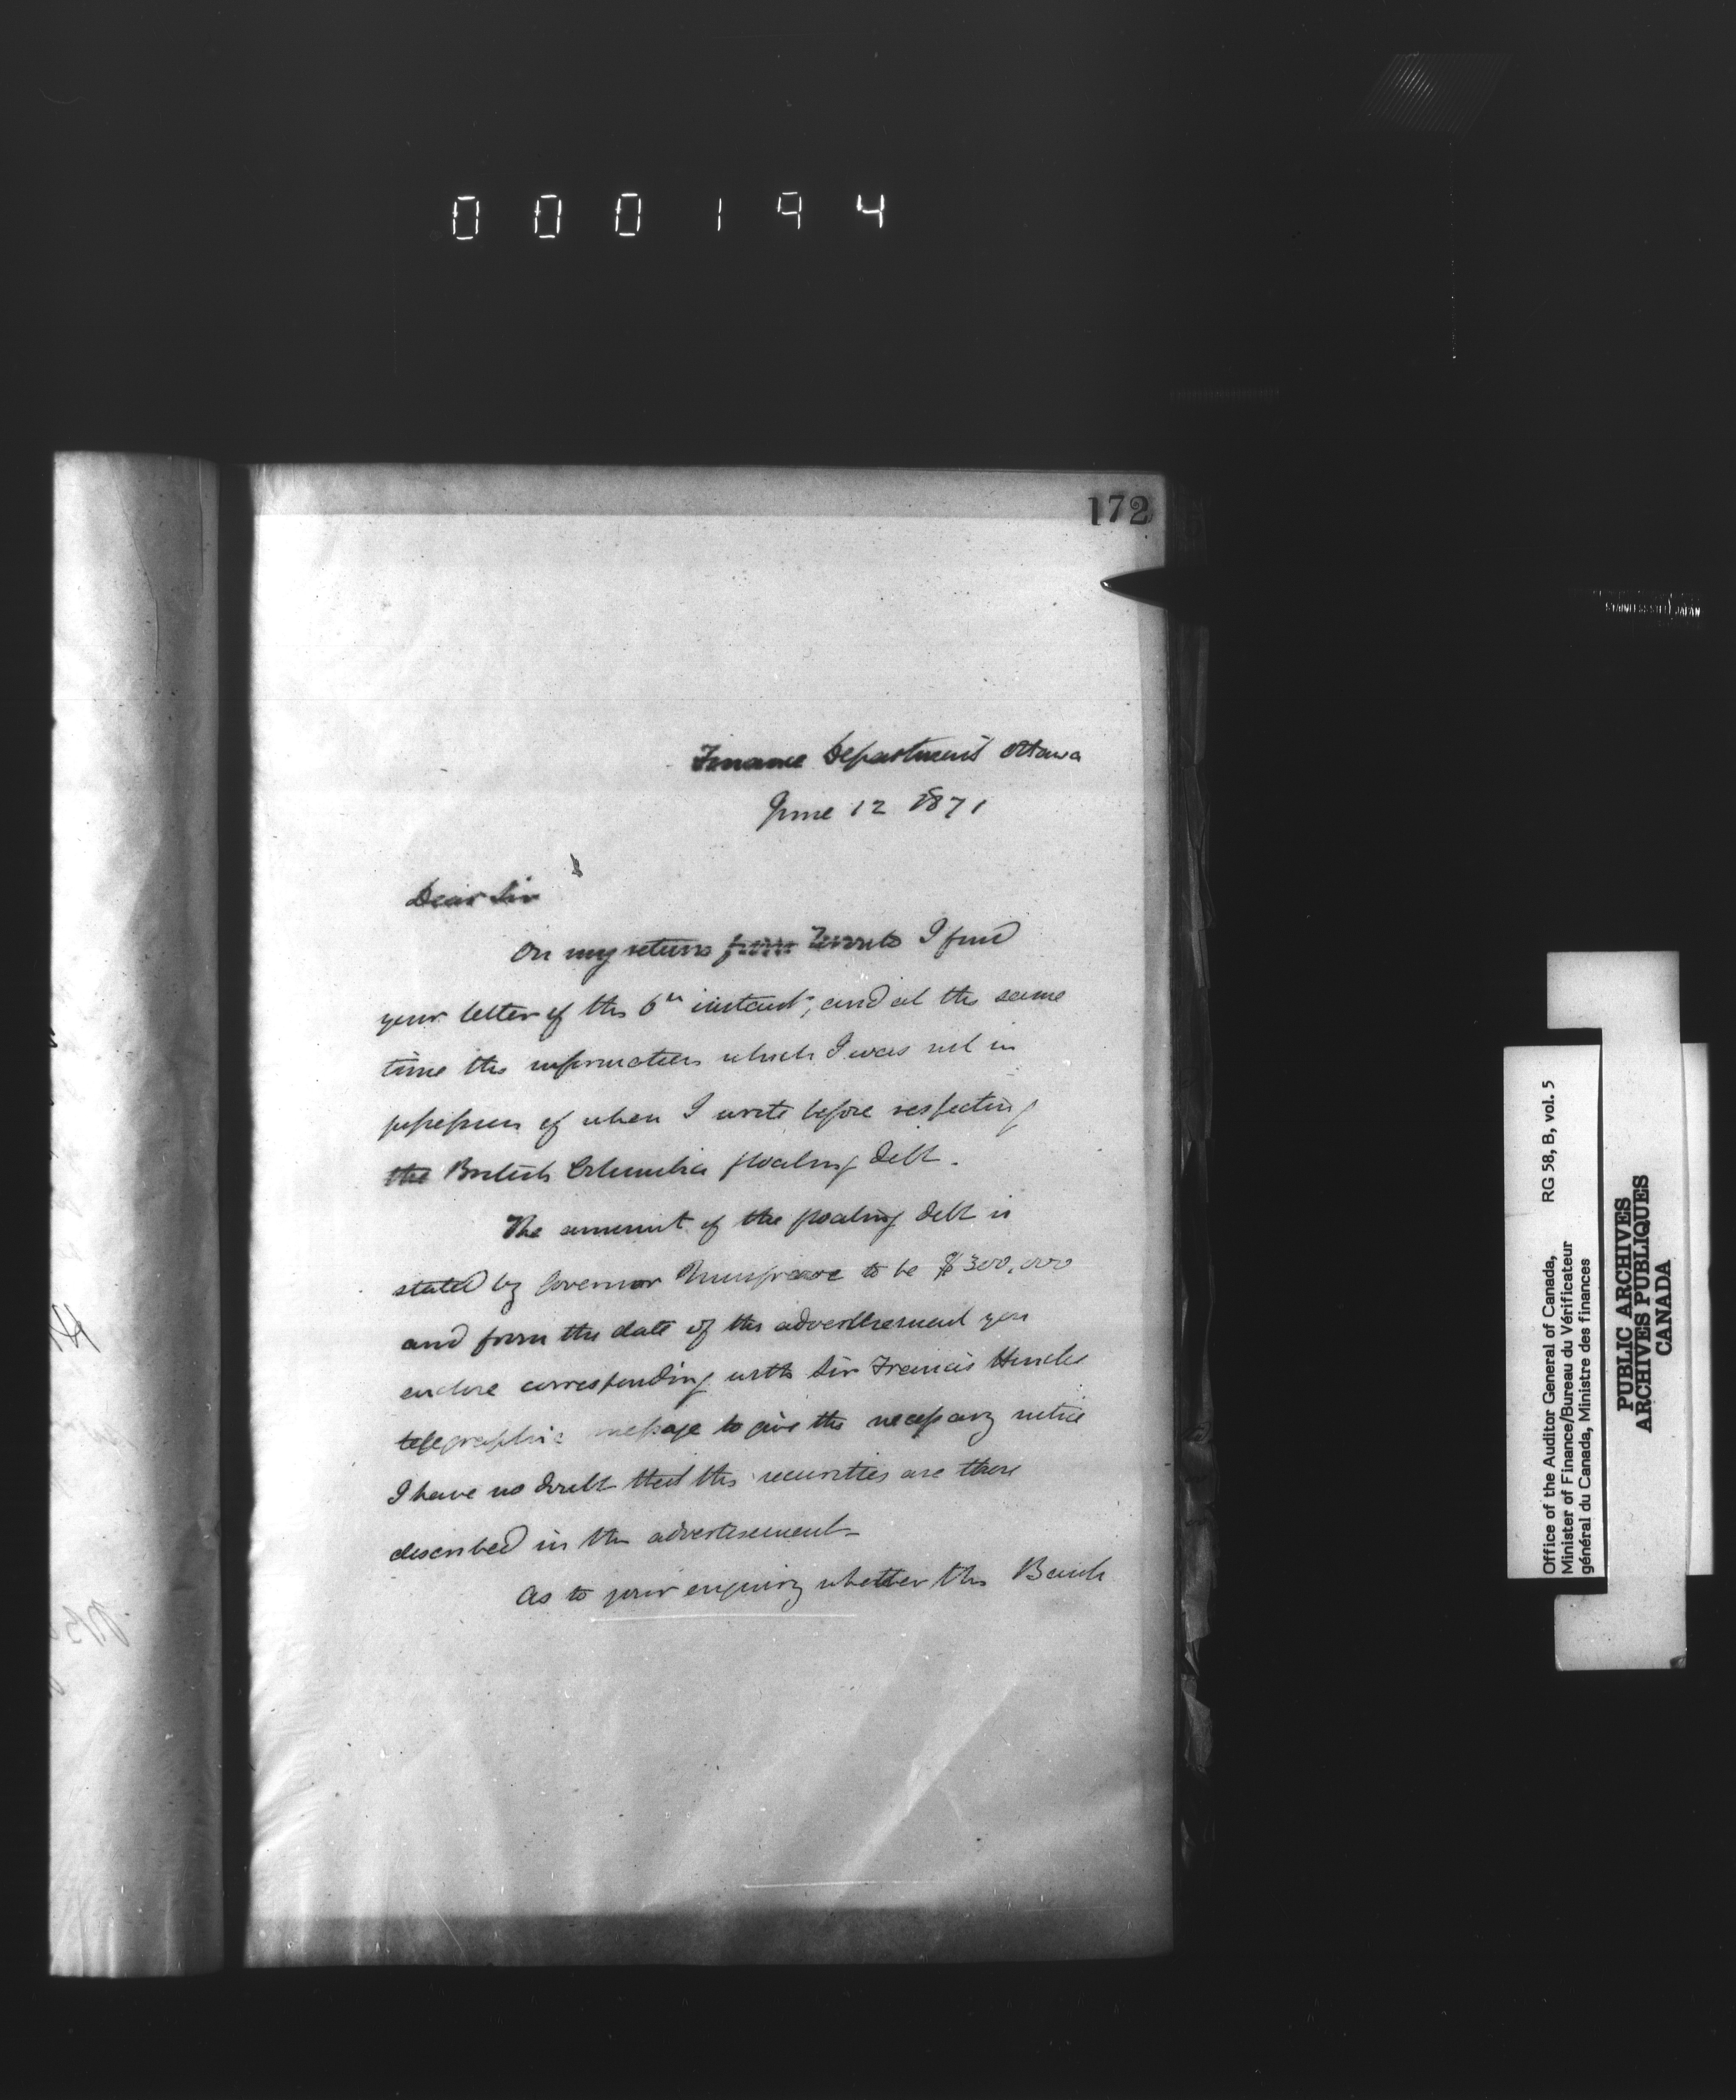 000194
172
Finance Department Ottawa
June 12 1871
Dear Sir
On my return from Toronto I find
your letter of the 6th instant, and at the same
time the information which I was not in
possession of when I wrote before respecting
the British Columbia floating debt.
The amount of the floating debt is
stated by Governor Musgrave to be $300,000
and from the date of the advertisement you
enclose corresponding with Sir Francis Hincks
telegraphic message to give the necessary notice
I have no doubt that the securities are those
described in the advertisement
As to your enquiry whether the Bank
STAINLESS STEEL JAPAN
Office of the Auditor General of Canada, RG 58, B, vol. 5
Minister of Finance/Bureau du Vérificateur
général du Canada, Ministre des finances
PUBLIC ARCHIVES
ARCHIVES PUBLIQUES
CANADA